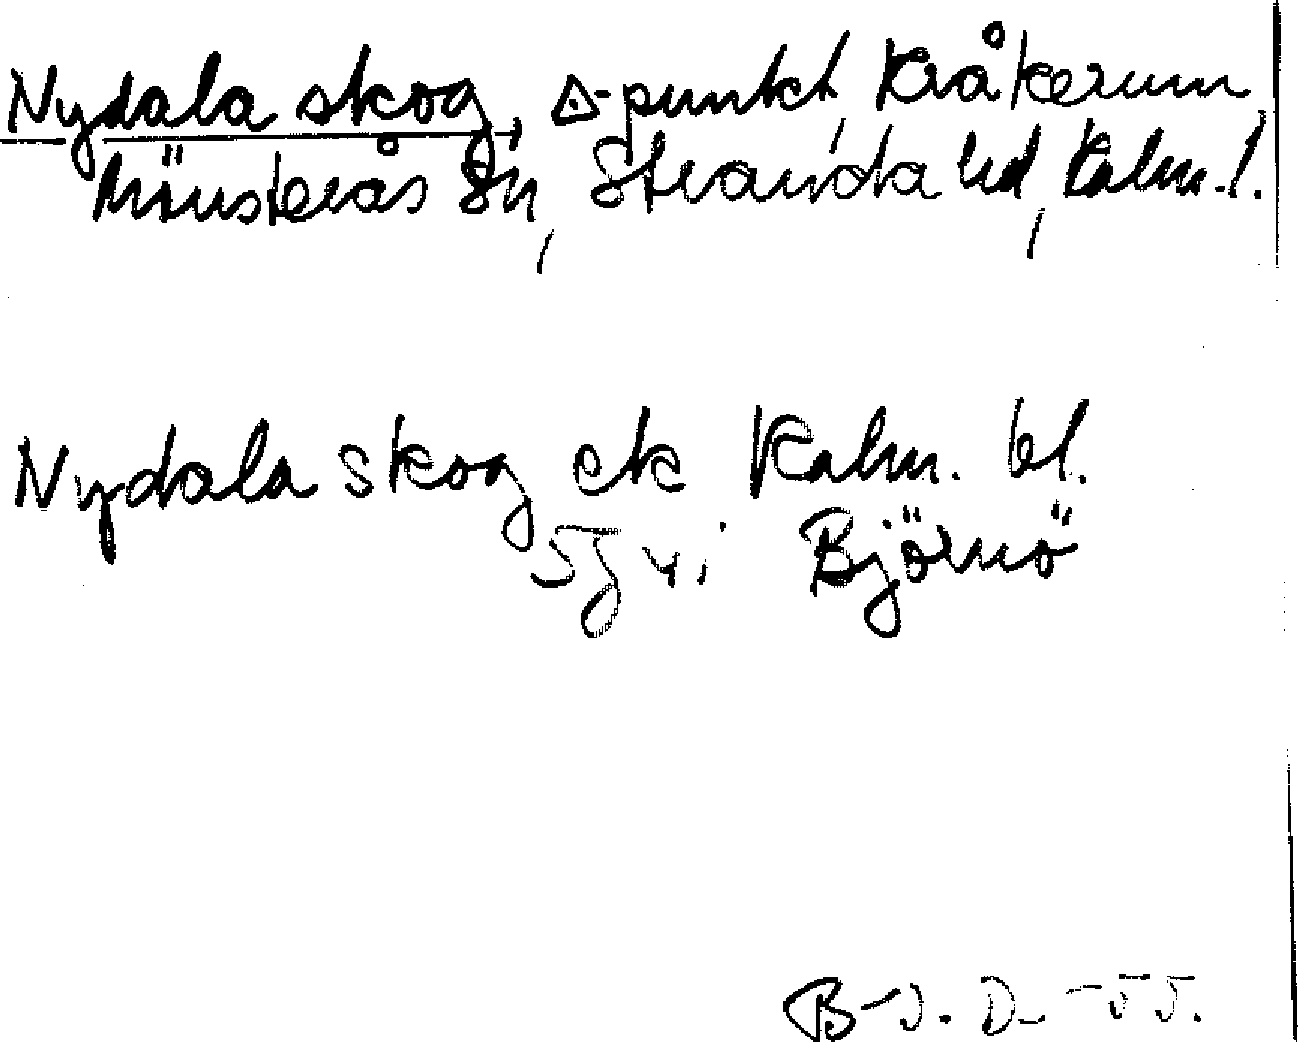 Nydala skog, △-punkt, Kråkerum
Mönsterås sn, Stranda hd, Kalm. l.
Nydala skog ek Kalm. bl.
5g4i Björnö
B-J. D. -55.